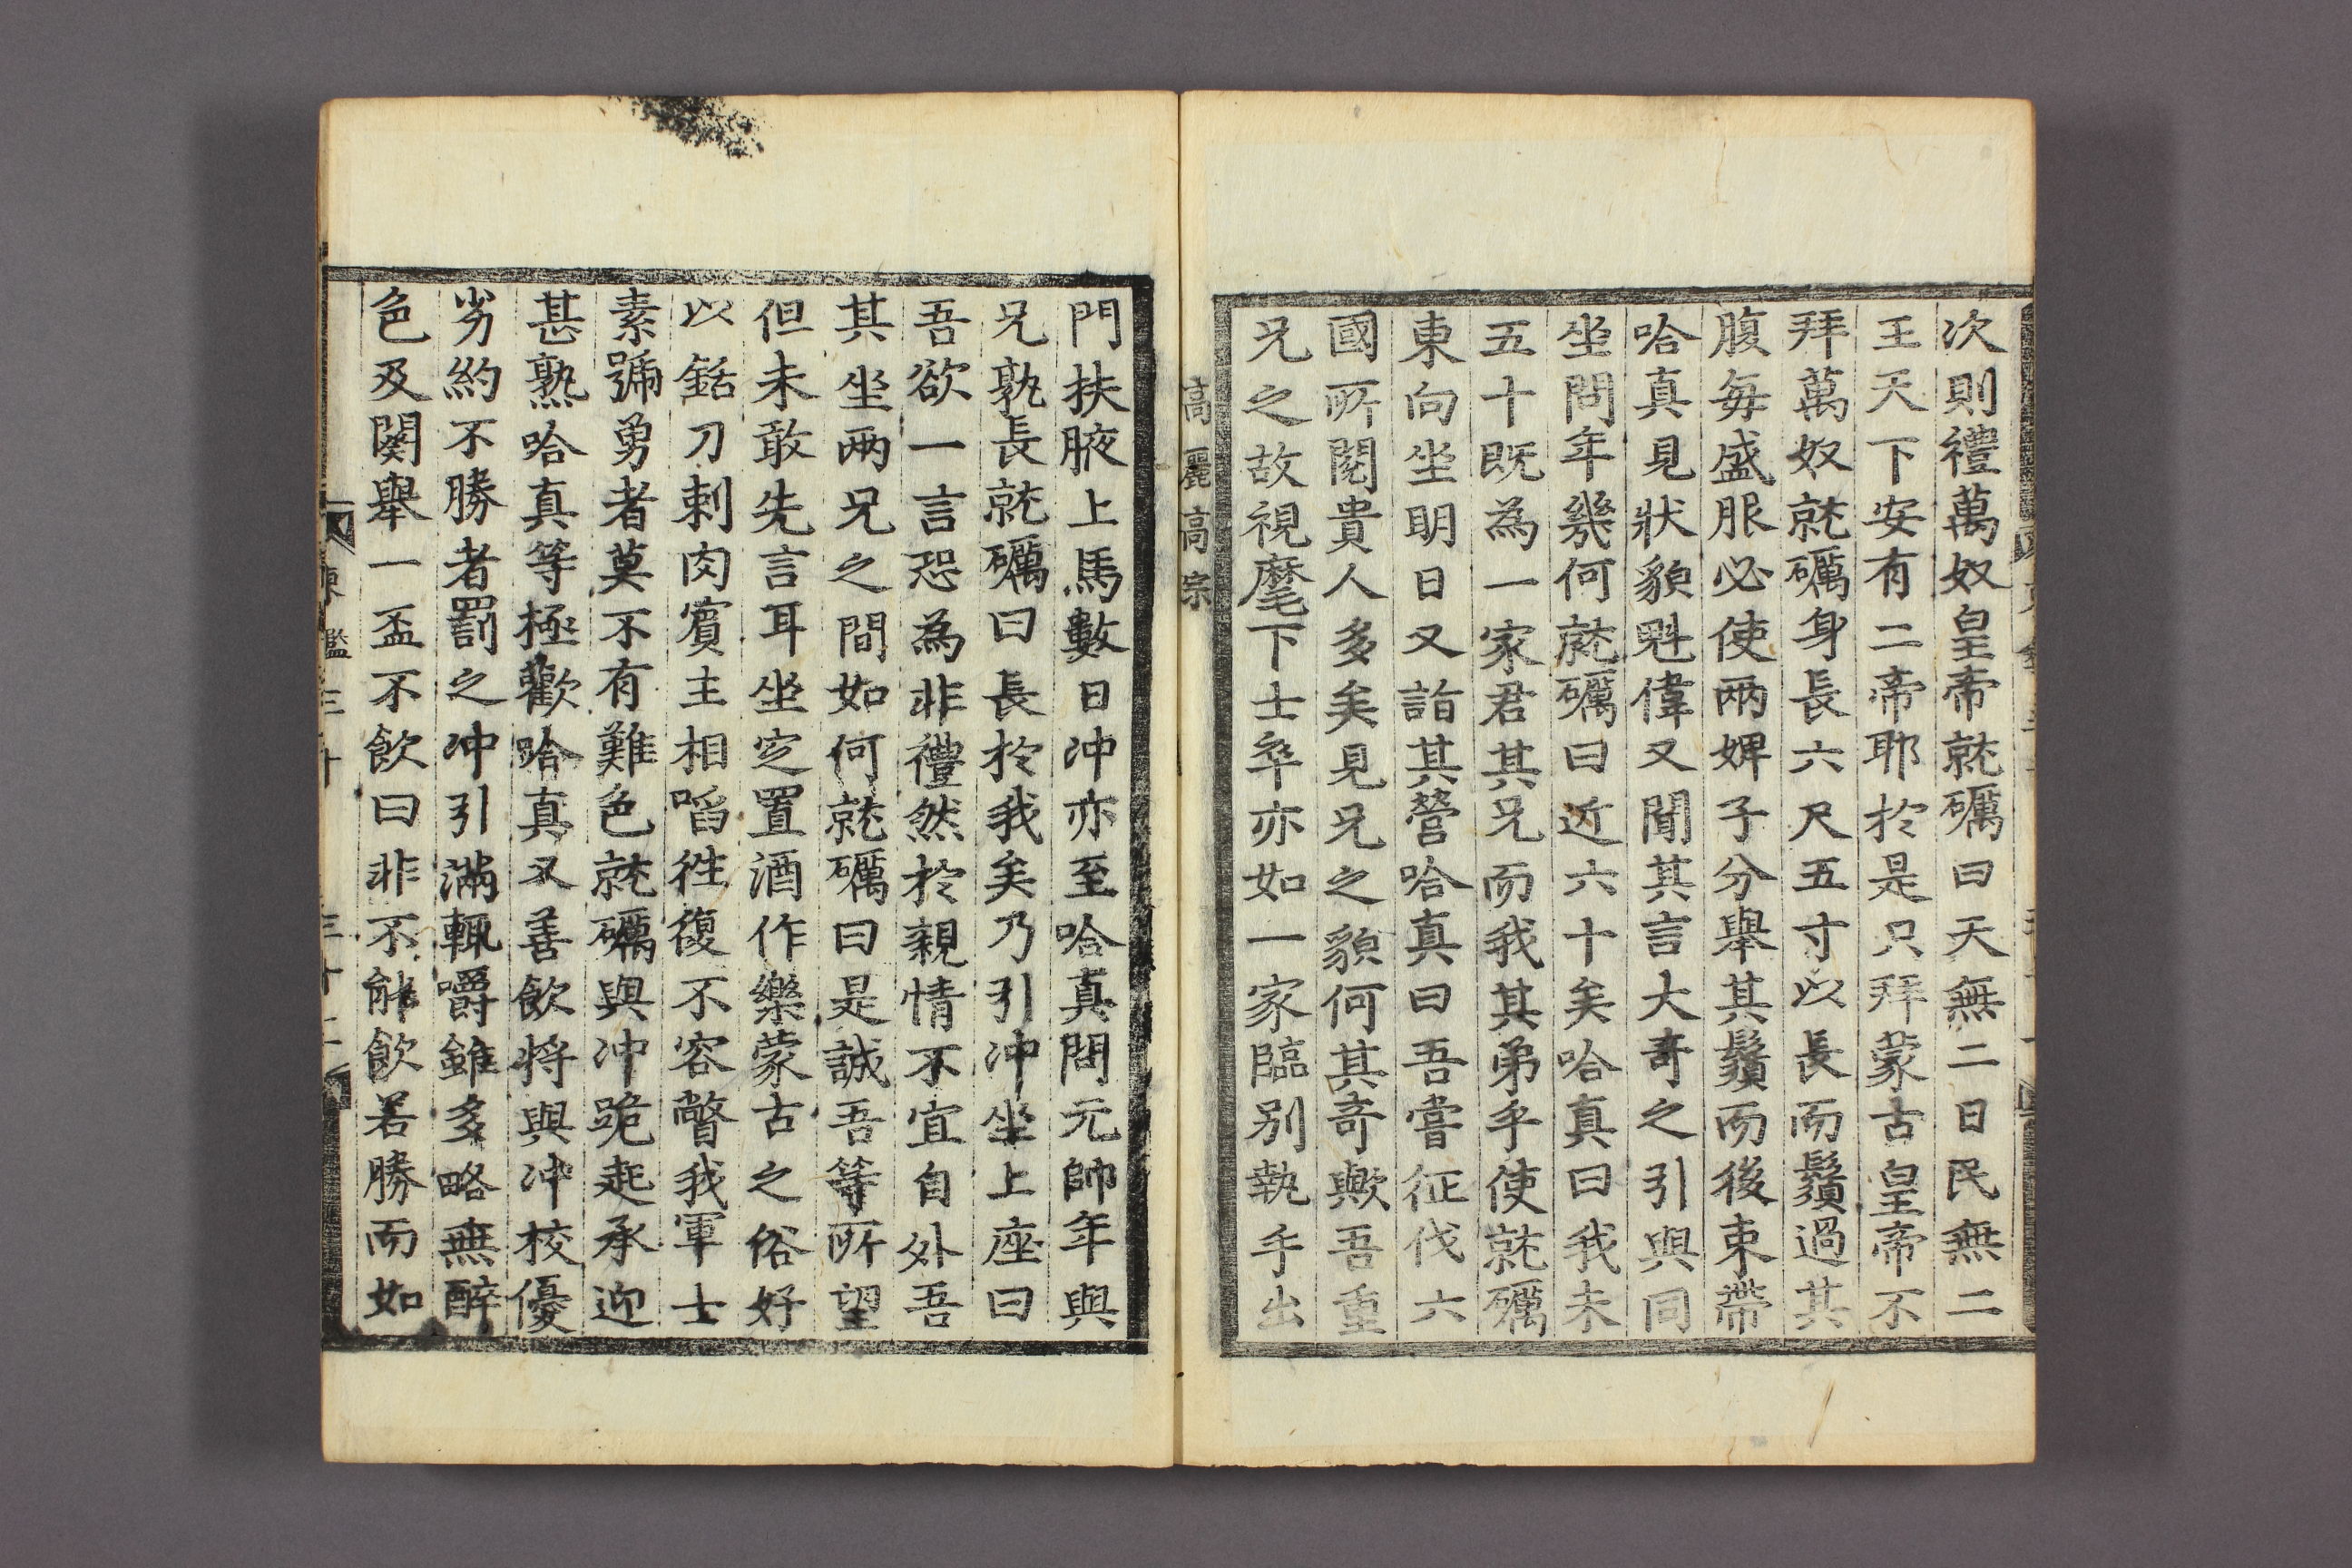 次則禮萬奴皇帝就礪曰天無二日民無二
王天下安有二帝耶於是只拜蒙古皇帝不
拜萬奴就礪身長六尺五寸以長而鬚過其
腹每盛服必使兩婢子分舉其鬚而後束帶
哈真見狀貌魁偉又聞其言大奇之引與同
坐問年幾何就礪曰近六十矣哈真曰我未
五十既為一家君其兄而我其弟乎使就礪
東向坐明日又詣其營哈真曰吾嘗征伐六
國所閱貴人多矣見兄之貌何其奇歟吾重
兄之故視麾下士卒亦如一家臨別執手出
高麗高宗
門扶腋上馬數日冲亦至哈真問元帥年與
兄孰長就礪曰長於我矣乃引冲坐上座曰
吾欲一言恐為非禮然於親情不宜自外吾
其坐兩兄之間如何就礪曰是誠吾等所望
但未敢先言耳坐定置酒作樂蒙古之俗好
以銛刀刺肉賓主相啗徃復不容瞥我軍士
素號勇者莫不有難色就礪與冲跪起承迎
甚熟哈真等極歡哈真又善飲將與冲校優
劣約不勝者罰之冲引滿輒嚼雖多略無醉
色及闋舉一盃不飲曰非不能飲若勝而如
鑑三十
三十二